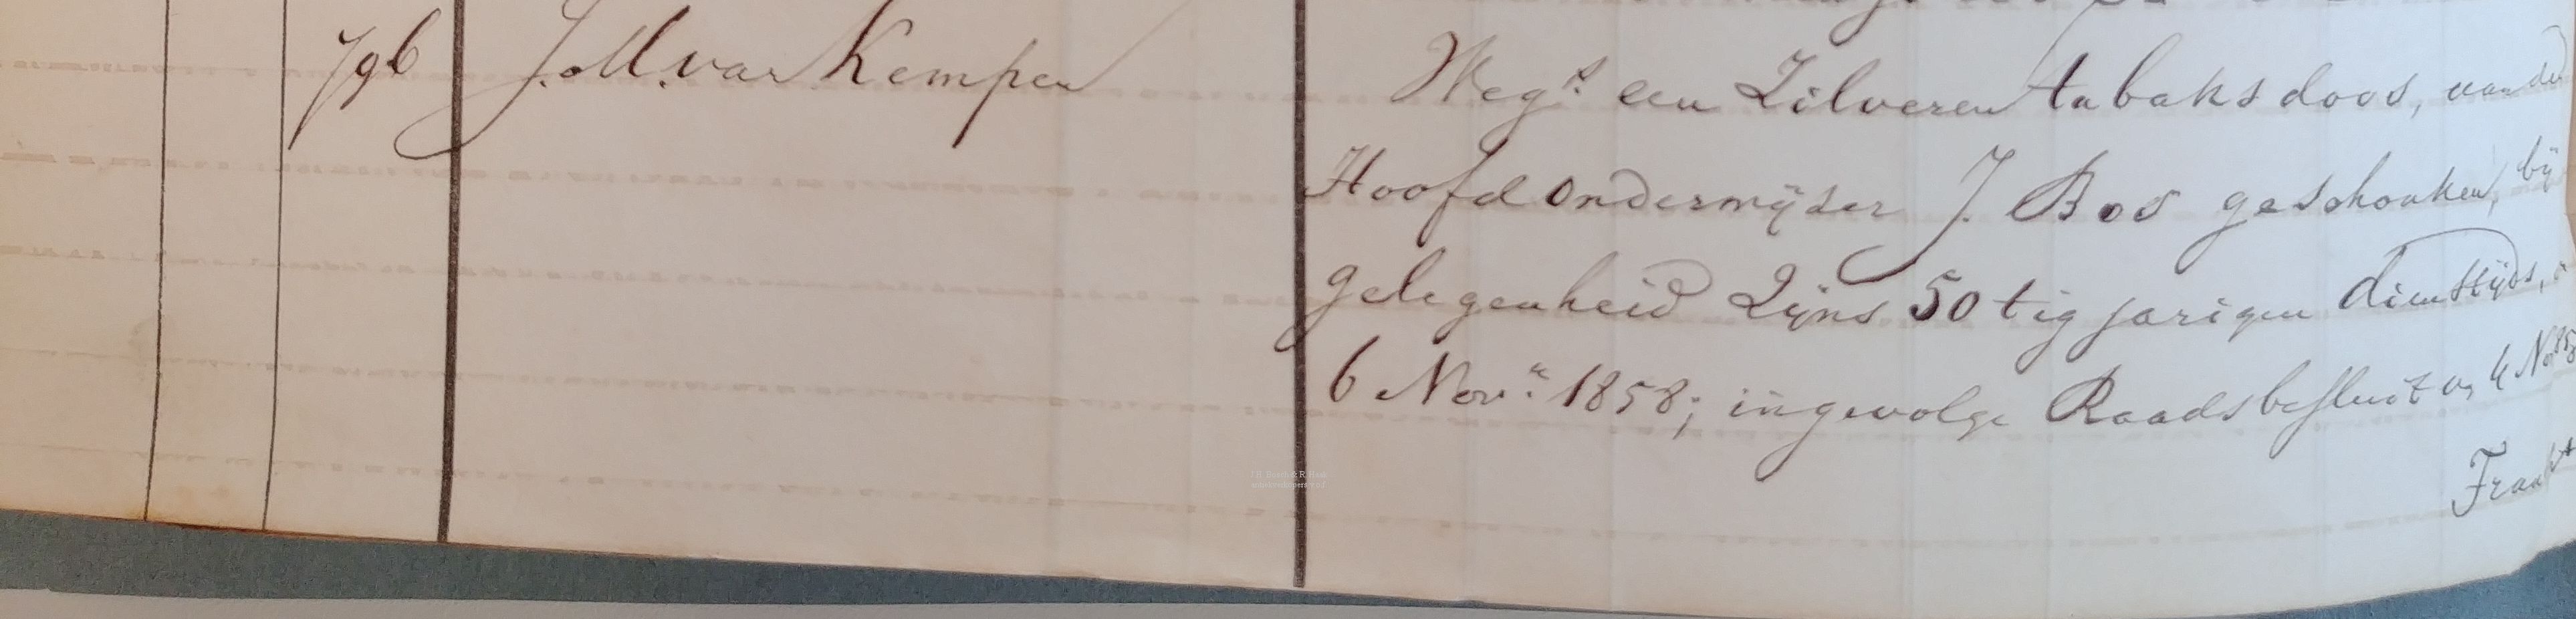 796 J. M. van Kempen
Weg.s een Zilveren tabaksdoos, aan den
Hoofdonderwijzer J. Bos geschonken, bij
gelegenheid Zijns 50 tig jarigen diensttijds,
6 Nov.r 1858; ingevolge Raadsbesluit v. 4 Nov 1858